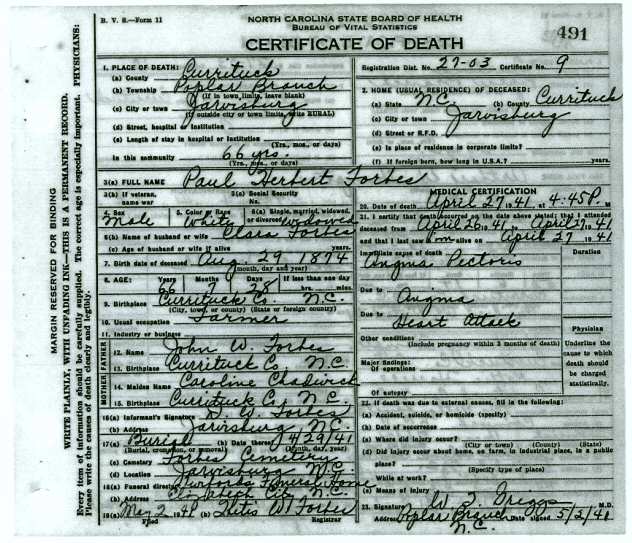 B. V. S.—Form 11
NORTH CAROLINA STATE BOARD OF HEALTH
BUREAU OF VITAL STATISTICS
CERTIFICATE OF DEATH
491
1. PLACE OF DEATH:
(a) County Currituck
(b) Township Poplar Branch
(If in town limits, leave blank)
(c) City or town Jarvisburg
(If outside city or town limits, write RURAL)
(d) Street, hospital or Institution
(e) Length of stay in hospital or Institution
(Yrs., mos., or days)
In this community 66 yrs.
(Yrs., mos., or days)
Registration Dist. No. 27-03 Certificate No. 9
2. HOME (USUAL RESIDENCE) OF DECEASED:
(a) State N.C. (b) County Currituck
(c) City or town Jarvisburg
(d) Street or R.F.D.
(e) Is place of residence in corporate limits?
(f) If foreign born, how long in U.S.A.? years.
3(a) FULL NAME Paul Herbert Forbes
3(b) If veteran, name war
3(c) Social Security No.
4. Sex Male
5. Color or Race White
6(a) Single, married, widowed, or divorced Widowed
6(b) Name of husband or wife Clara Forbes
6(c) Age of husband or wife if alive years.
7. Birth date of deceased Aug. 29 1874
(month, day and year)
8. AGE: Years 66 Months 7 Days 28 If less than one day hrs. mins.
9. Birthplace Currituck Co. N.C.
(City, town, or county) (State or foreign country)
10. Usual occupation Farmer
11. Industry or business
FATHER
12. Name John W. Forbes
13. Birthplace Currituck Co. N.C.
MOTHER
14. Maiden Name Caroline Chadwick
15. Birthplace Currituck Co. N.C.
16(a) Informant's Signature Forbes
(b) Address Jarvisburg N.C.
17(a) Burial (b) Date thereof 4/29/41
(Burial, cremation, or removal) (Month, day, year)
(c) Cemetery Forbes Cemetery
(d) Location Jarvisburg N.C.
18(a) Funeral director Funeral Home
(b) Address Elizabeth City N.C.
19(a) May 2 1941 (b) W. Forbes
Filed Registrar
MEDICAL CERTIFICATION
20. Date of death April 27 1941, at 4:45 P. M
21. I certify that death occurred on the date above stated; that I attended
deceased from April 26, 41 to April 27, 1941
and that I last saw him alive on April 27 1941
Immediate cause of death Duration
Angina Pectoris
Due to Angina
Due to Heart Attack
Other conditions
(Include pregnancy within 3 months of death)
Major findings:
Of operations
Of autopsy
Physician
Underline the cause to which death should be charged statistically.
22. If death was due to external causes, fill in the following:
(a) Accident, suicide, or homicide (specify)
(b) Date of occurrence
(c) Where did injury occur?
(City or town) (County) (State)
(d) Did injury occur about home, on farm, in industrial place, in a public
place?
(Specify type of place)
While at work?
(e) Means of injury
23. Signature W. T. Griggs M.D.
Address Poplar Branch N.C. Date signed 5/2/41
MARGIN RESERVED FOR BINDING
WRITE PLAINLY, WITH UNFADING INK—THIS IS A PERMANENT RECORD.
Every item of information should be carefully supplied. The correct age is especially important. PHYSICIANS:
Please write the causes of death clearly and legibly.